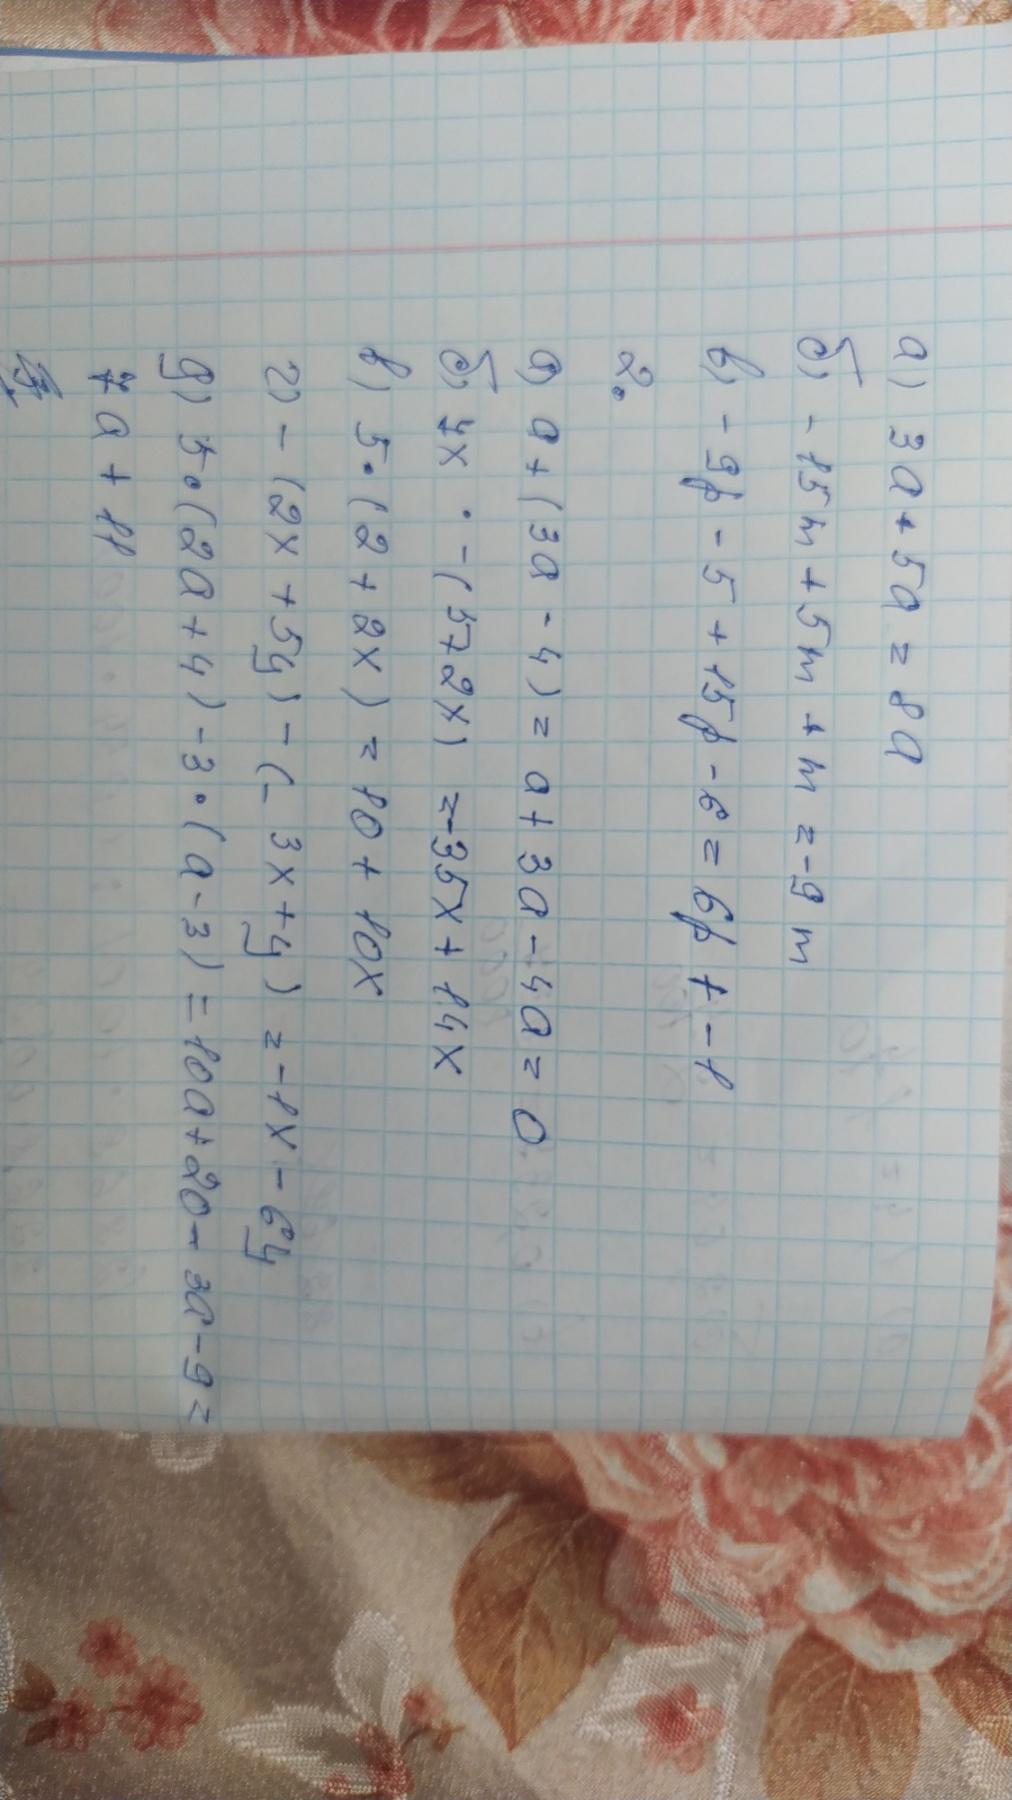 а) 3a + 5a = 8a
б) - 15m + 5m + m = -9 m
в) - 9p - 5 + 15p - 6 = 6p + - 1
2.
а) a + (3a - 4) = a + 3a - 4a = 0
б) 4x · - (5 7 2x) = -35x + 14x
в) 5 · (2 + 2x) = 10 + 10x
г) - (2x + 5y) - (- 3x + y) = - 1x - 6y
д) 5 · (2a + 4) - 3 · (a - 3) = 10a + 20 - 3a - 9 =
7a + 11